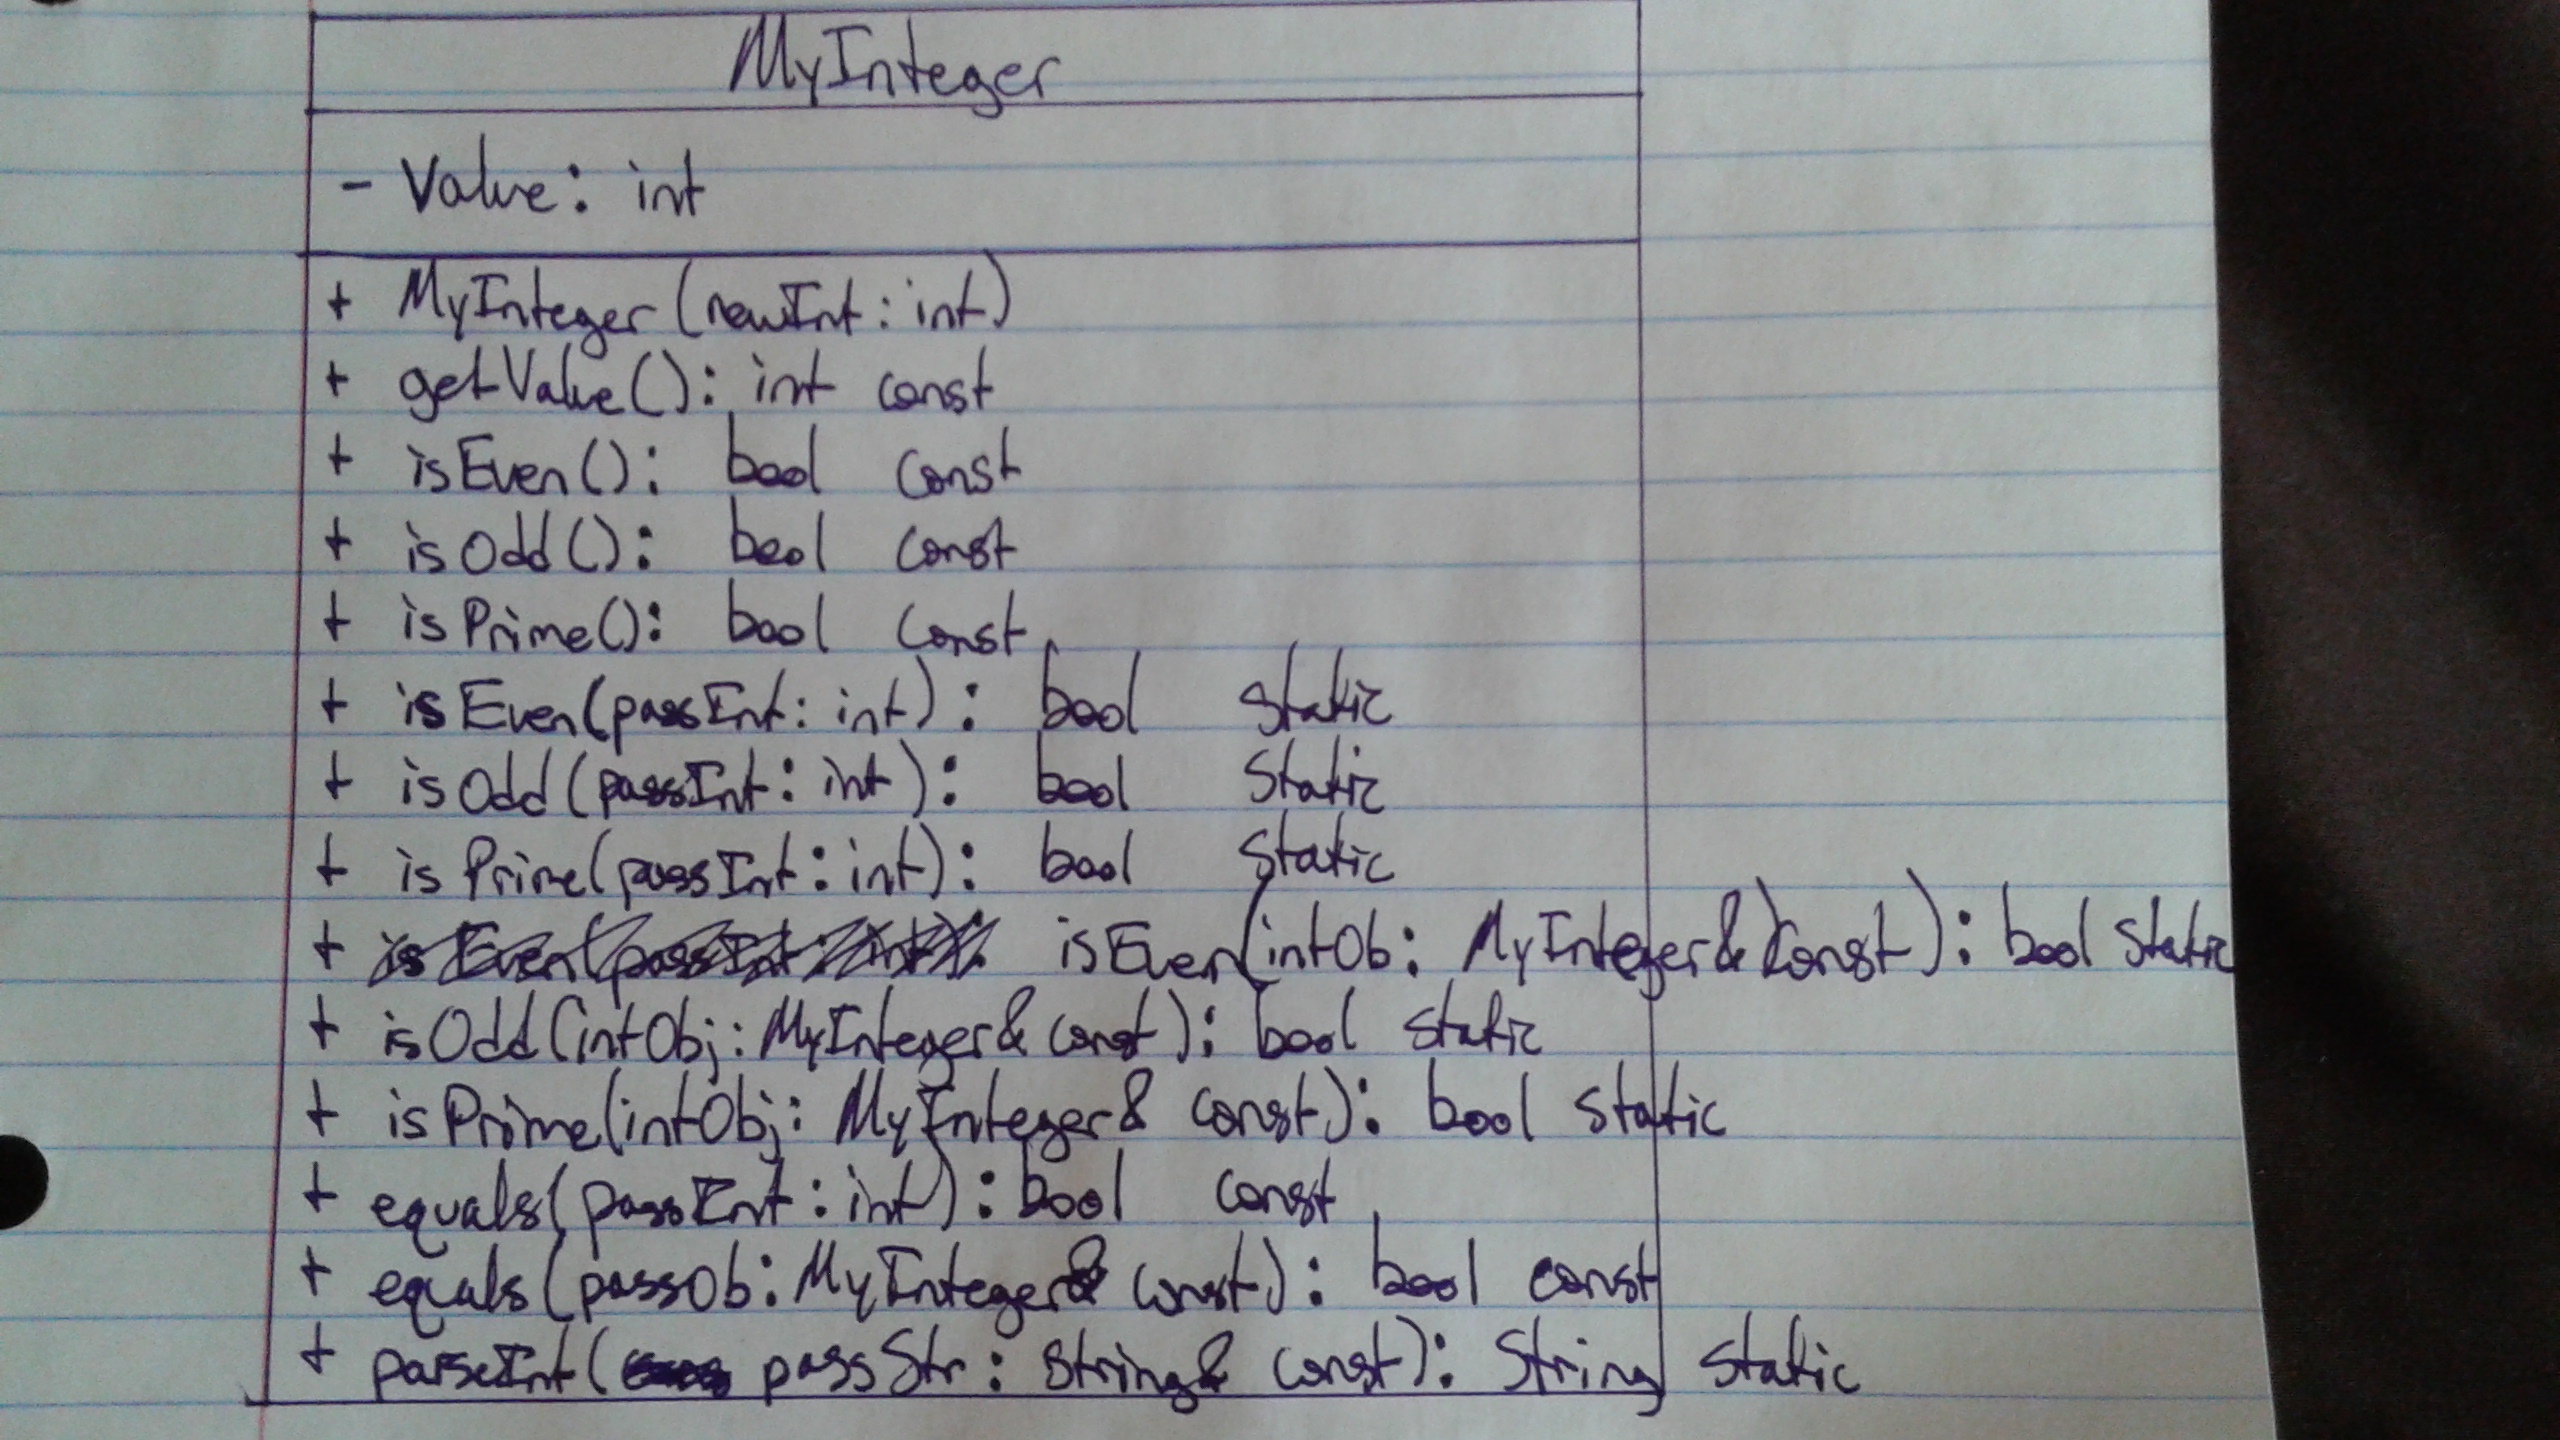 MyInteger
- Value: int
+ MyInteger(newInt: int)
+ getValue(): int const
+ isEven(): bool const
+ isOdd(): bool const
+ isPrime(): bool const
+ isEven(passInt: int): bool static
+ isOdd(passInt: int): bool static
+ isPrime(passInt: int): bool static
+ isEven(intOb: MyInteger& const): bool static
+ isOdd(intObj: MyInteger& const): bool static
+ isPrime(intObj: MyInteger& const): bool static
+ equals(passInt: int): bool const
+ equals(passOb: MyInteger& const): bool const
+ parseInt( passStr: string& const): String static